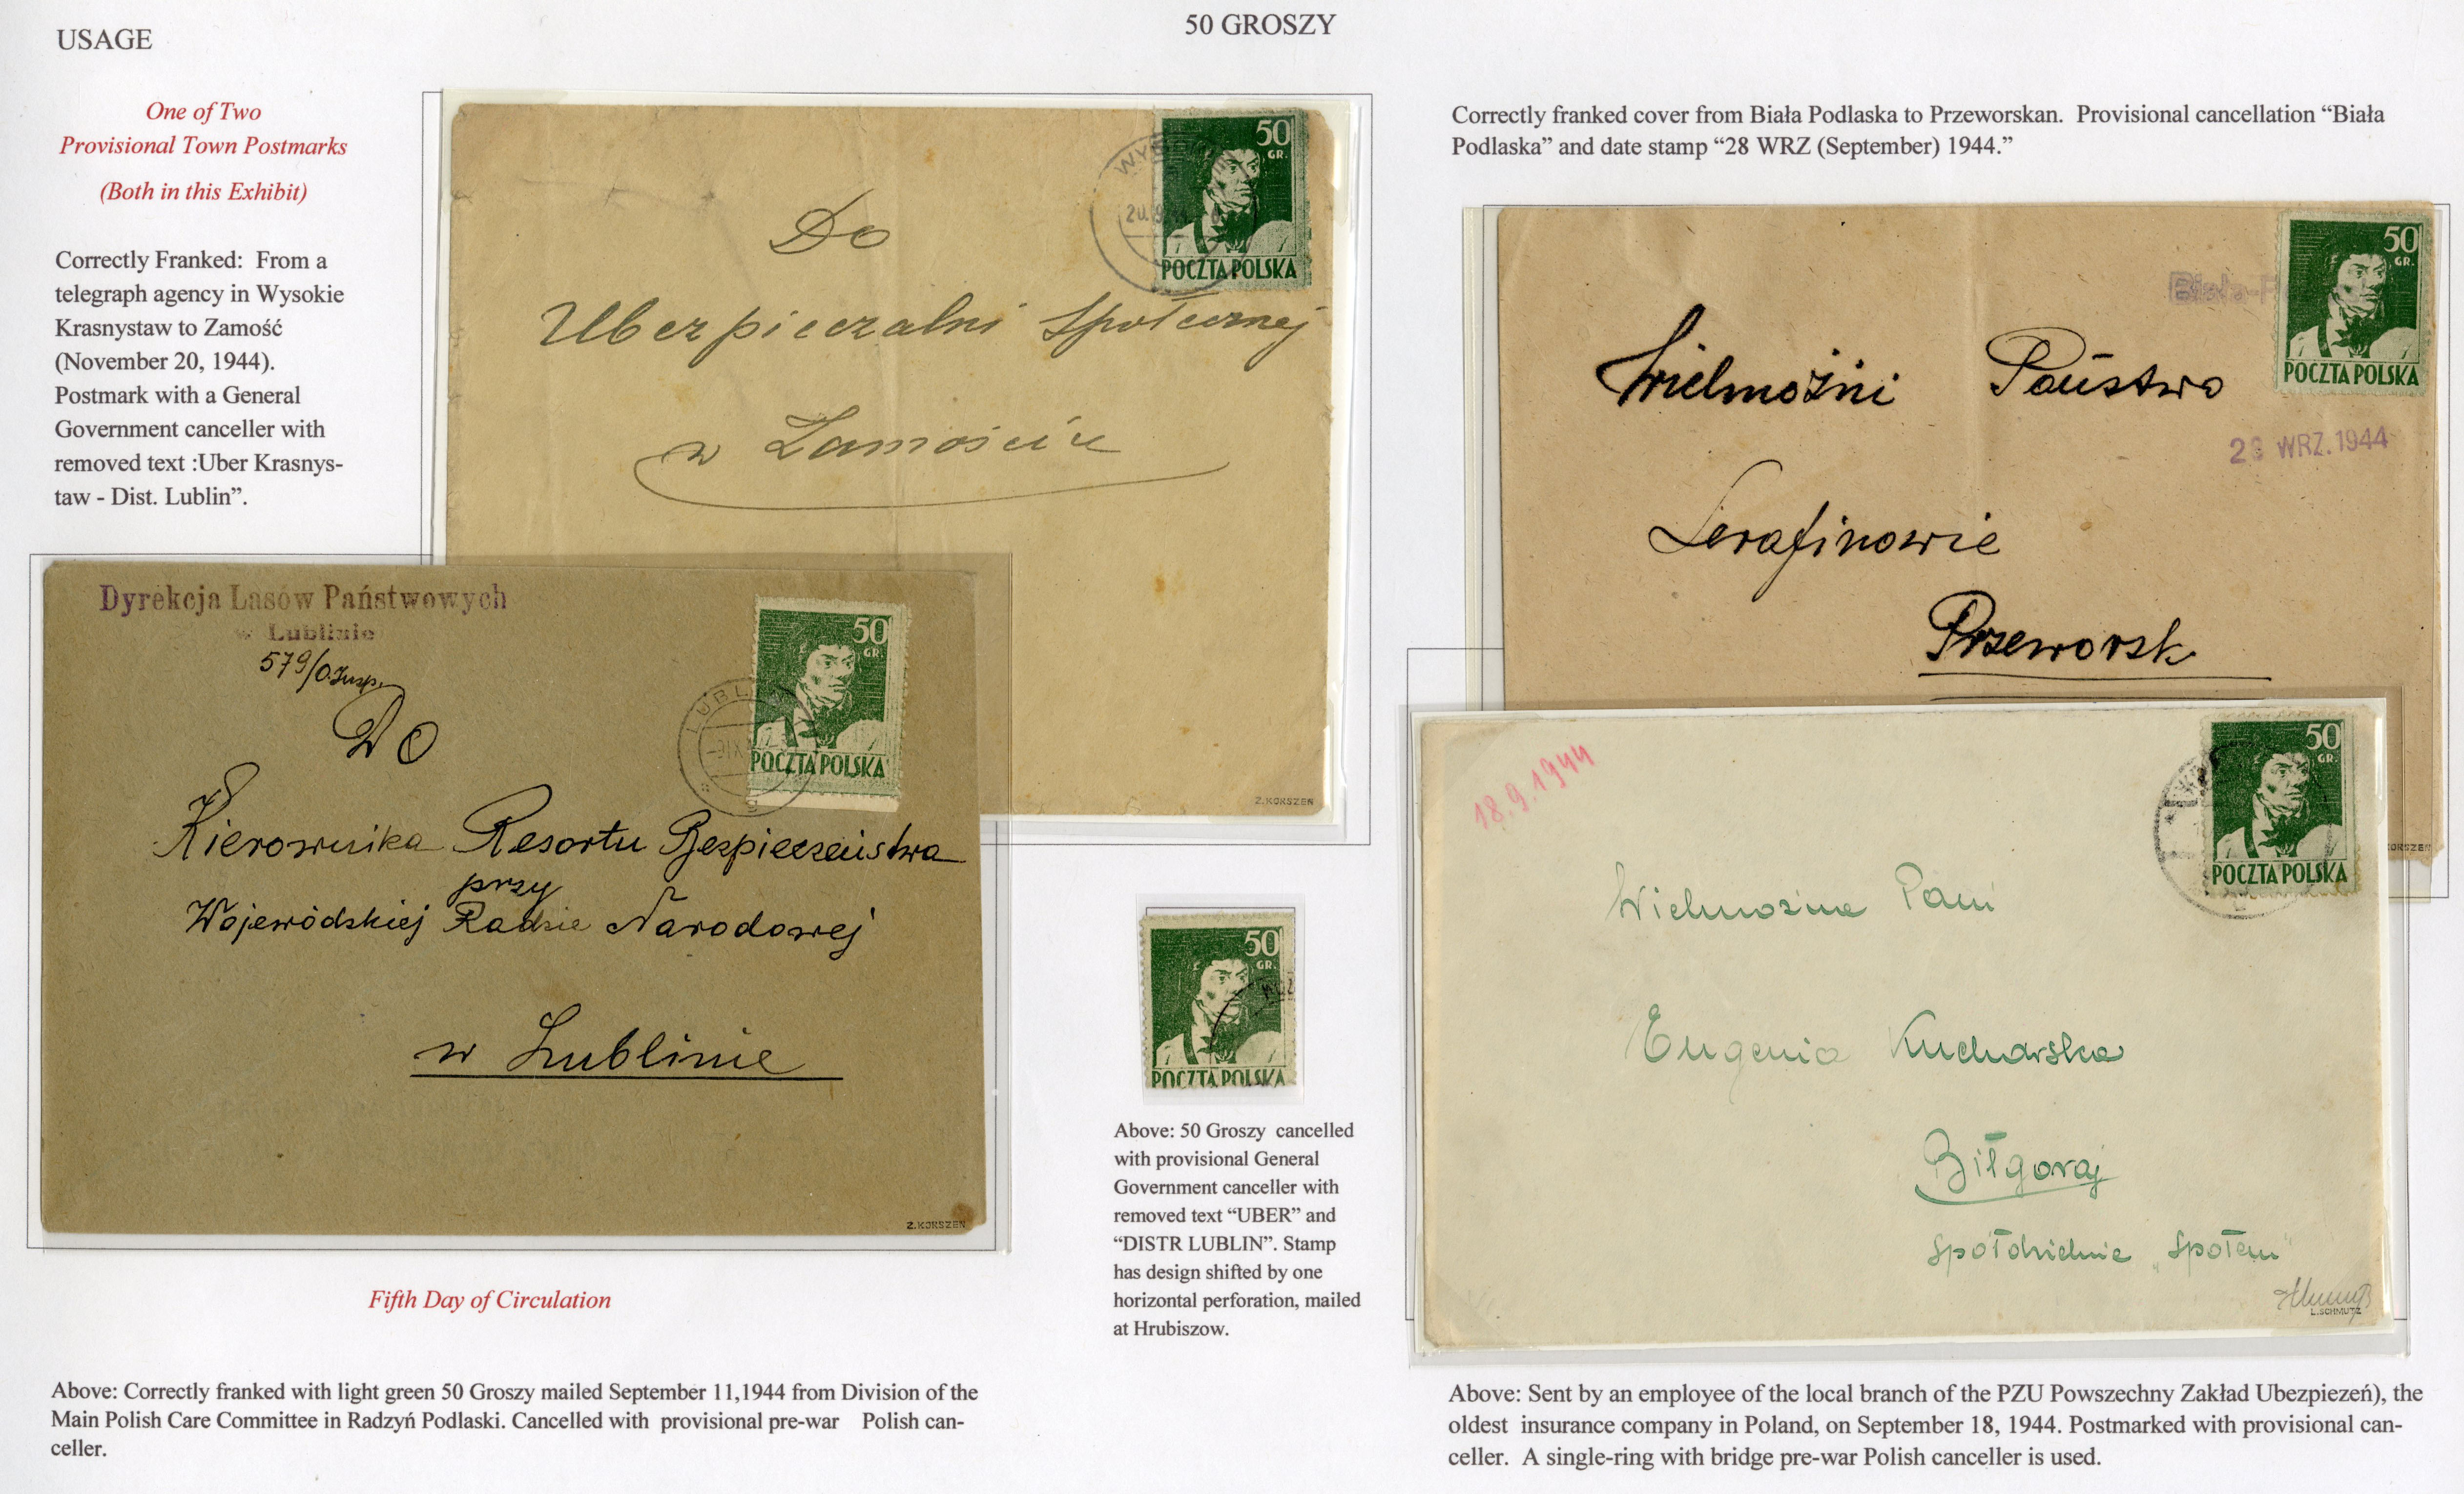 USAGE
50 GROSZY
One of Two
Provisional Town Postmarks
(Both in this Exhibit)
Correctly Franked:  From a
telegraph agency in Wysokie
Krasnystaw to Zamość
(November 20, 1944).
Postmark with a General
Government canceller with
removed text :Uber Krasnys-
taw - Dist. Lublin”.
50
GR.
POCZTA POLSKA
Do
Ubezpieczalni Społecznej
w Zamościu
Z.KORSZEŃ
Correctly franked cover from Biała Podlaska to Przeworskan.  Provisional cancellation “Biała
Podlaska” and date stamp “28 WRZ (September) 1944.”
50
GR.
POCZTA POLSKA
Biała-P
Wielmożni Państwo
28 WRZ.1944
Serafinowie
Przeworsk
KORSZEŃ
Dyrekcja Lasów Państwowych
w Lublinie
579/O.Insp.
50
GR.
POCZTA POLSKA
LUBLIN
Do
Kierownika Resortu Bezpieczeństwa
przy
Wojewódskiej Radzie Narodowej
w Lublinie
Z.KORSZEŃ
Fifth Day of Circulation
Above: Correctly franked with light green 50 Groszy mailed September 11,1944 from Division of the
Main Polish Care Committee in Radzyń Podlaski. Cancelled with  provisional pre-war    Polish can-
celler.
50
GR.
POCZTA POLSKA
Above: 50 Groszy  cancelled
with provisional General
Government canceller with
removed text “UBER” and
“DISTR LUBLIN”. Stamp
has design shifted by one
horizontal perforation, mailed
at Hrubiszow.
18.9.1944
50
GR.
POCZTA POLSKA
Wielmożna Pani
Eugenia Kucharska
Biłgoraj
Społdzielnia „Społem”
L.SCHMUTZ
Above: Sent by an employee of the local branch of the PZU Powszechny Zakład Ubezpiezeń), the
oldest  insurance company in Poland, on September 18, 1944. Postmarked with provisional can-
celler.  A single-ring with bridge pre-war Polish canceller is used.